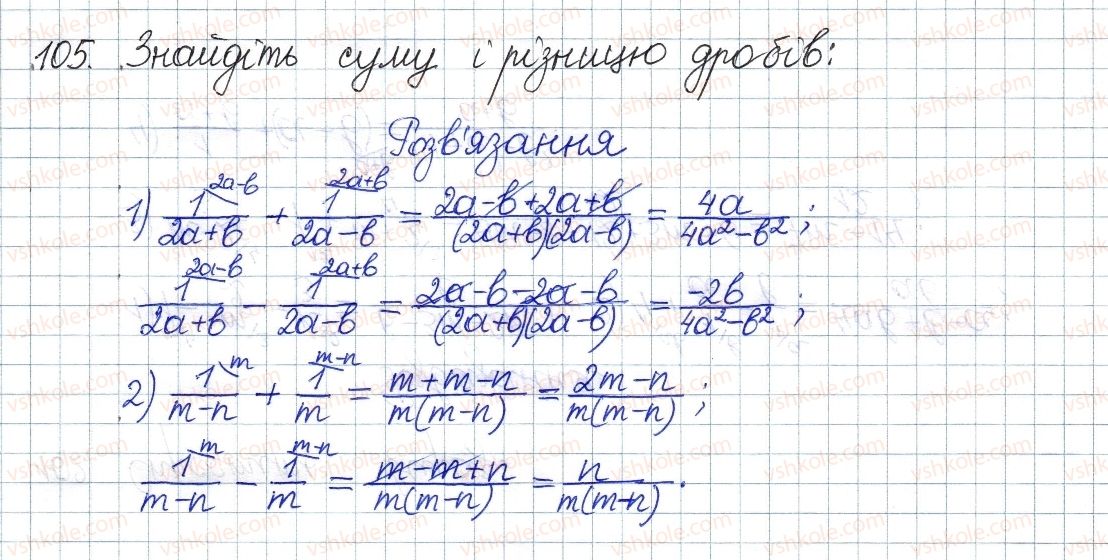 105. Знайдіть суму і різницю дробів:
Розв'язання
1) 1^(2a-в)/(2a+в) + 1^(2a+в)/(2a-в) = (2a-в+2a+в)/((2a+в)(2a-в)) = 4a/(4a²-в²);
1^(2a-в)/(2a+в) - 1^(2a+в)/(2a-в) = (2a-в-2a-в)/((2a+в)(2a-в)) = -2в/(4a²-в²);
2) 1^m/(m-n) + 1^(m-n)/m = (m+m-n)/(m(m-n)) = (2m-n)/(m(m-n));
1^m/(m-n) - 1^(m-n)/m = (m-m+n)/(m(m-n)) = n/(m(m-n)).